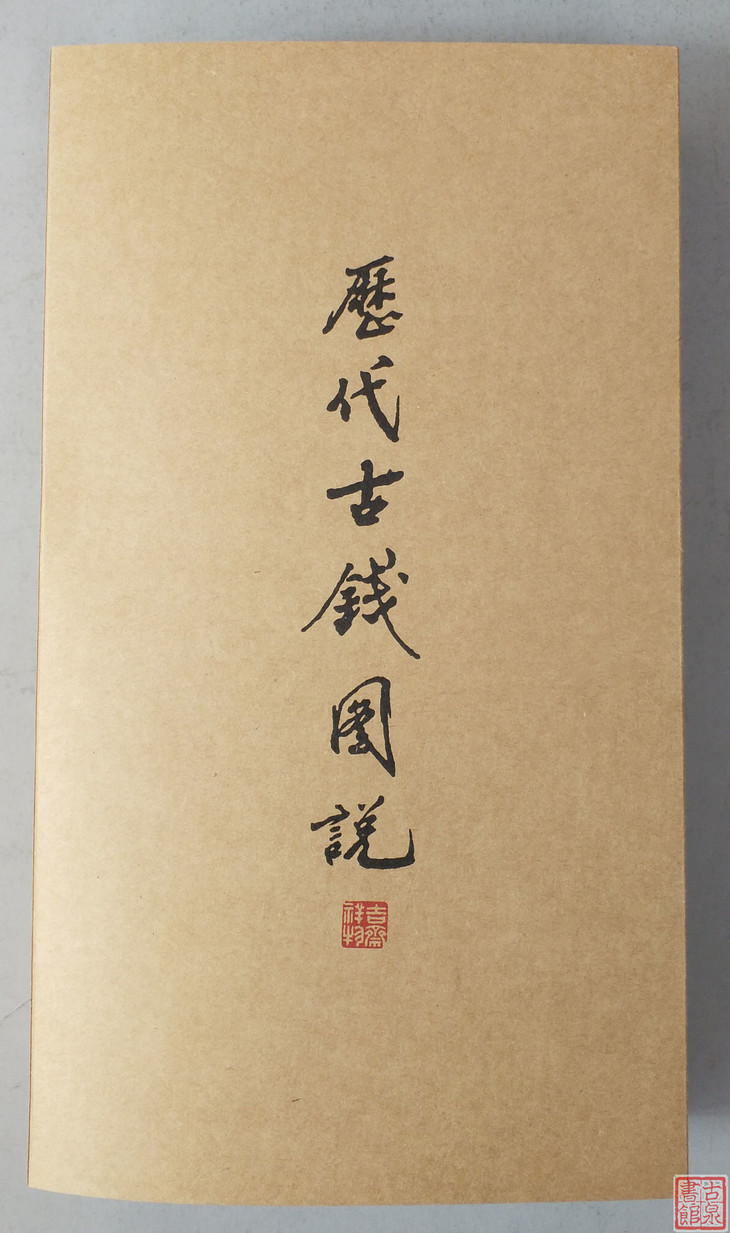 歷代古錢圖說
吉齋祥物
古泉書館